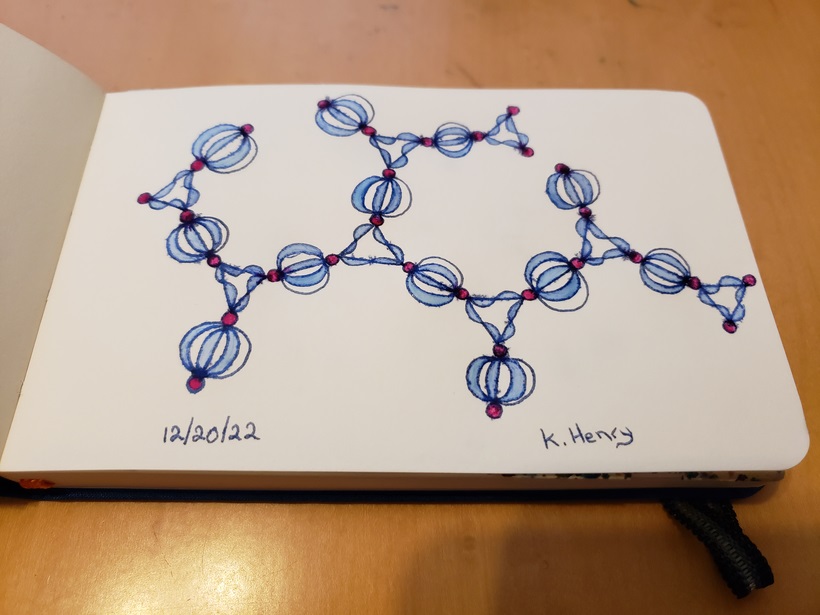 12/20/22
K. Henry